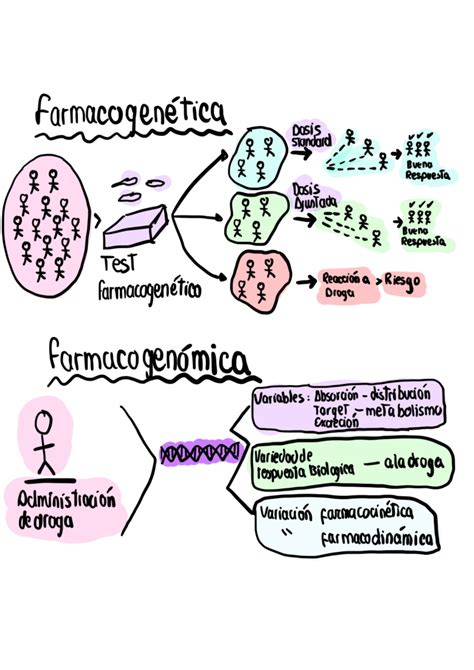 farmacogenética
Dosis
Standard
Buena
Respuesta
Dosis
Ajuntada
Buena
Respuesta
Test
farmacogenético
Reacción a > Riesgo
Droga
farmacogenómica
Variables: Absorción - distribución
Target - metabolismo
Excreción
Variedad de
respuesta Biologica - a la droga
Administración
de droga
Variación farmacocinética
" farmacodinámica